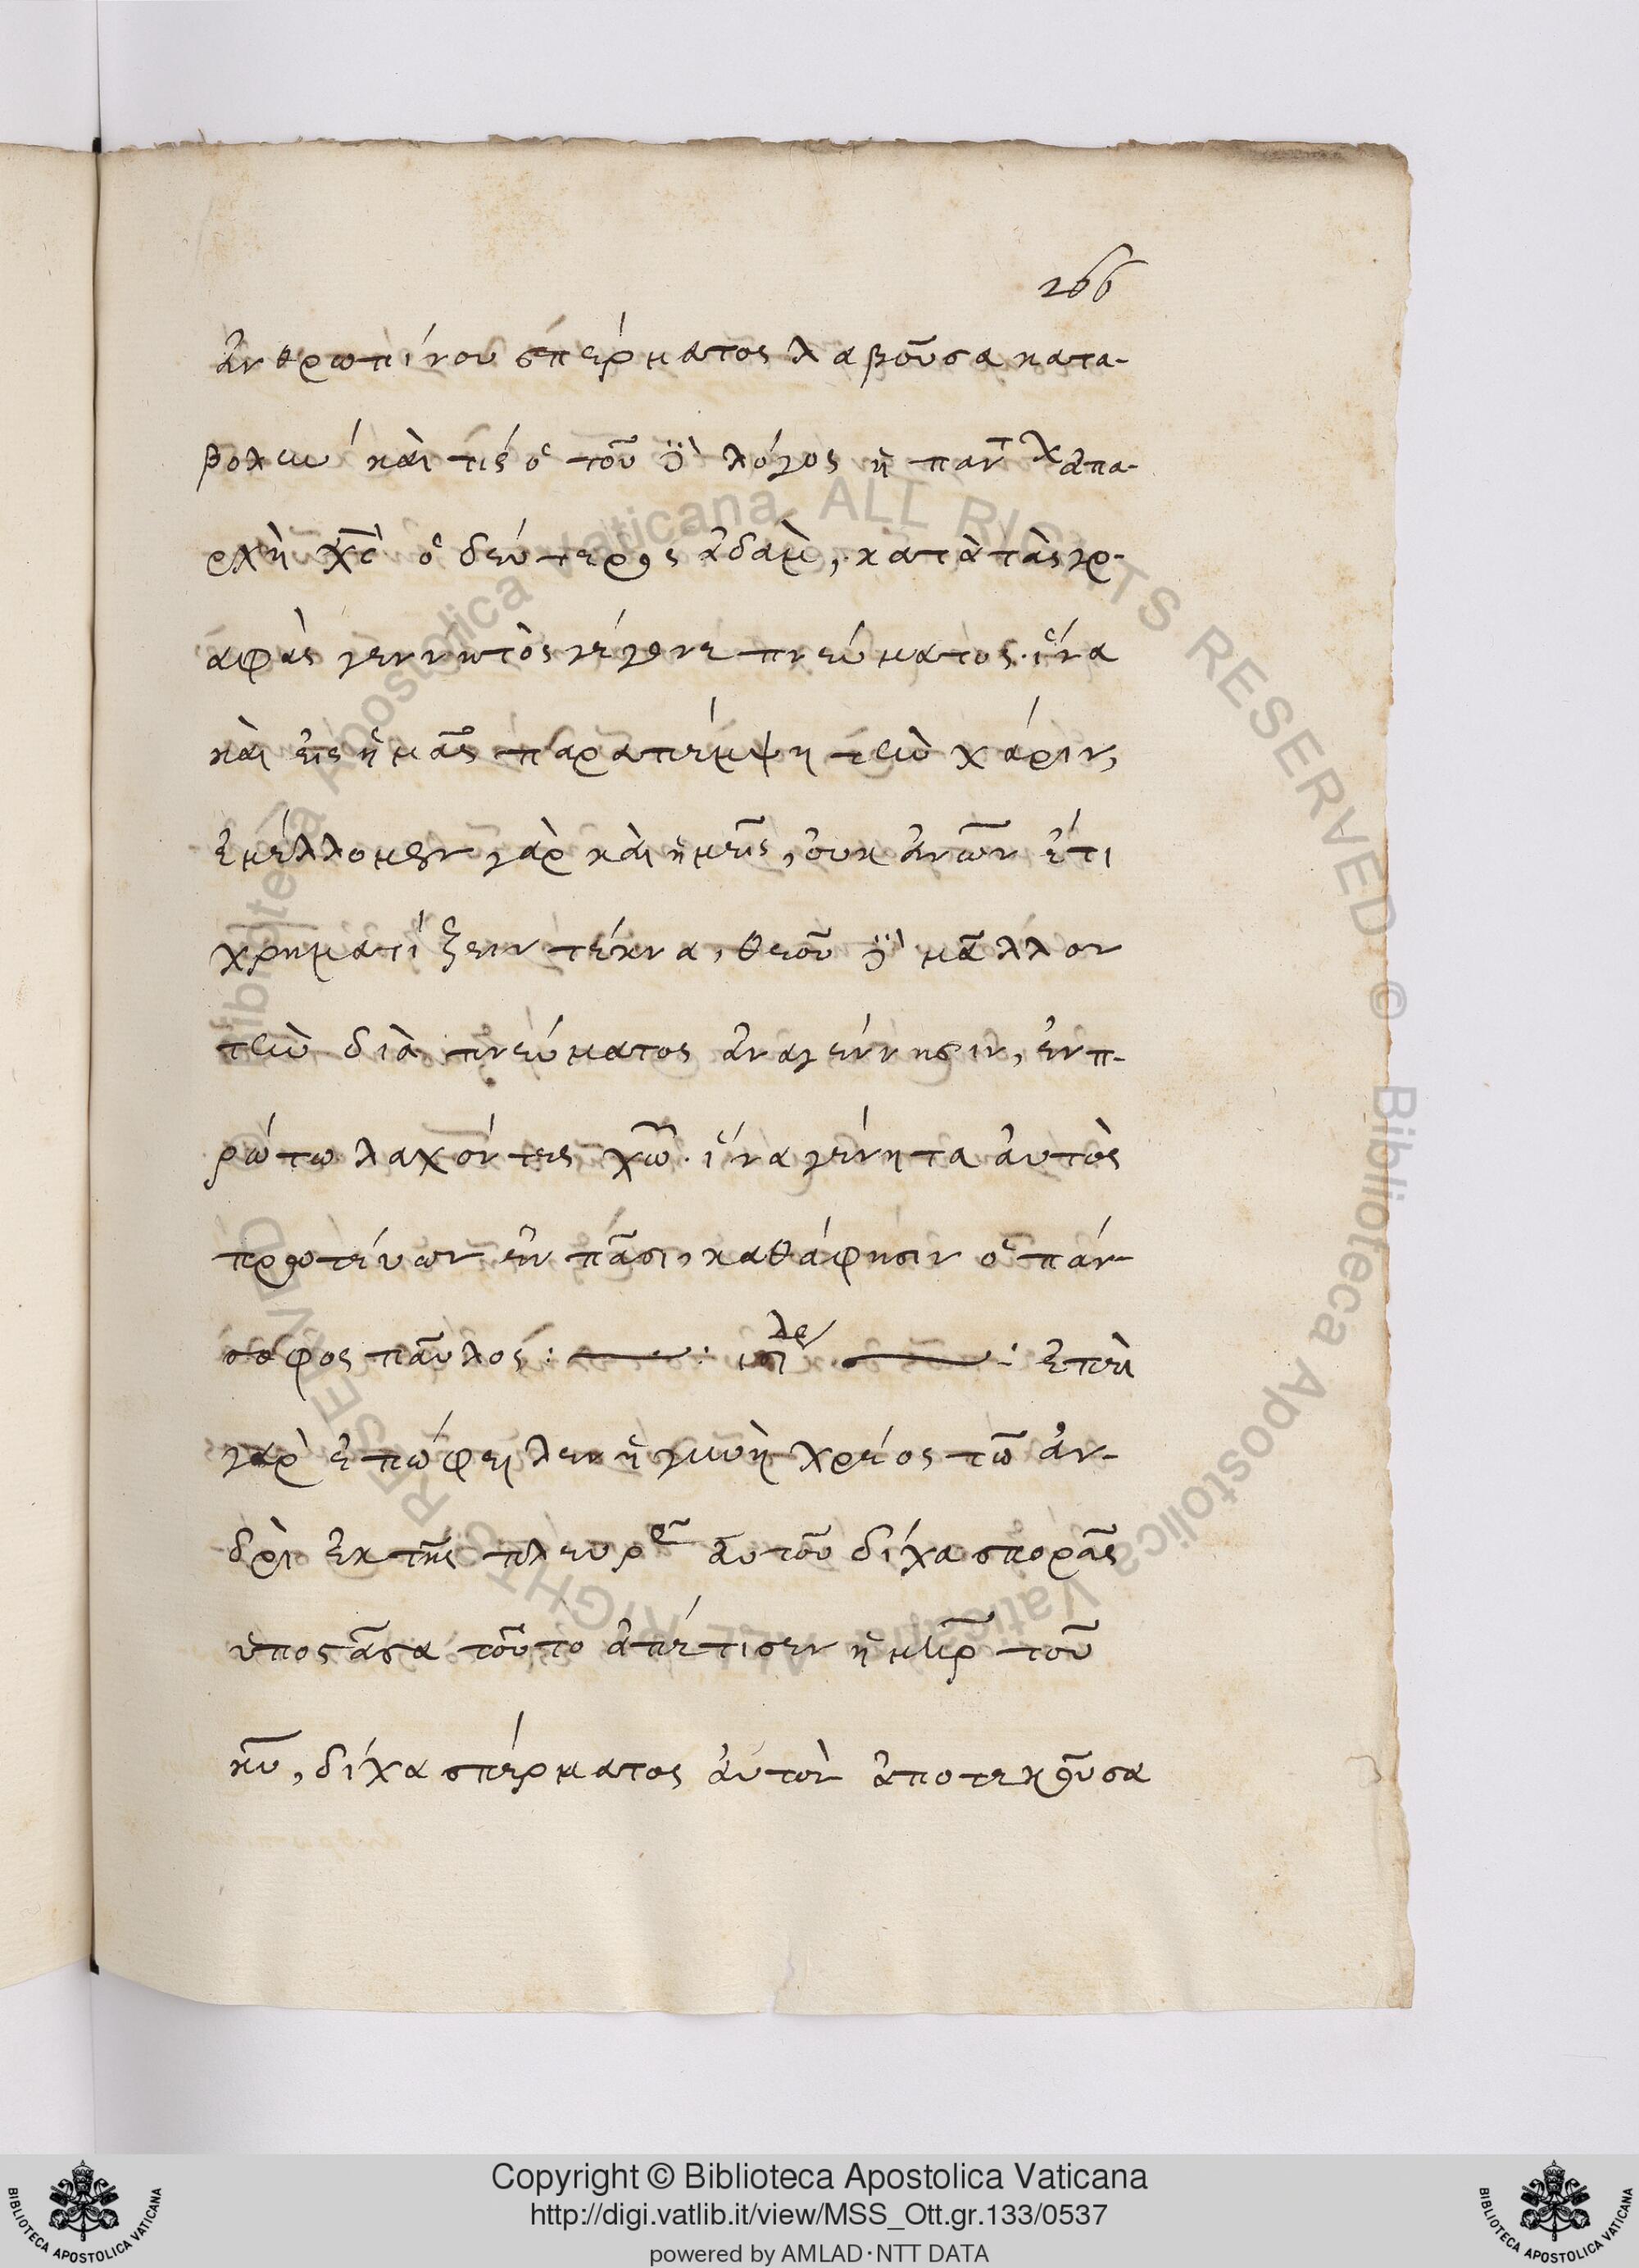 266
ἀνθρωπίνου σπέρματος λαβοῦσα κατα-
βολὴν καὶ τίς ὁ τοῦ δὲ λόγος ἡ παντ ἀπα-
ρχὴ χς̅ ὁ δεύτερος ἀδὰμ, κατὰ τὰς γρ-
αφὰς γεννητὸς γέγονε πνεύματος. ἵνα
καὶ εἰς ἡμᾶς παραπέμψη τὴν χάριν,
ἐμέλλομεν γὰρ καὶ ἡμεῖς, οὐκ ἀνω̅ν ἔτι
χρηματίζειν τέκνα, θεοῦ δὲ μᾶλλον
τὴν διὰ πνεύματος ἀναγέννησιν, ἐν π-
ρώτω λαχόντες χω̅. ἵνα γένηται αὐτὸς
πρωτεύων ἐν πᾶσι, καθάφησιν ὁ πάν-
σοφος παῦλος: ἐπεὶ
γὰρ ἐπώφειλεν ἡ γυνὴ χρέος τῶ ἀν-
δρὶ ἐκ τῆς πλευρᾶς αὐτοῦ δίχα σπορᾶς
ὑποστᾶσα τοῦτο ἀπέτισεν ἡ μηρ̅ τοῦ
κυ̅, δίχα σπέρματος αὐτὸν ἀποτεκοῦσα
Copyright © Biblioteca Apostolica Vaticana
http://digi.vatlib.it/view/MSS_Ott.gr.133/0537
powered by AMLAD·NTT DATA
BIBLIOTECA APOSTOLICA VATICANA
BIBLIOTECA APOSTOLICA VATICANA
Biblioteca Apostolica Vaticana ALL RIGHTS RESERVED © Biblioteca Apostolica Vaticana ALL RIGHTS RESERVED ©